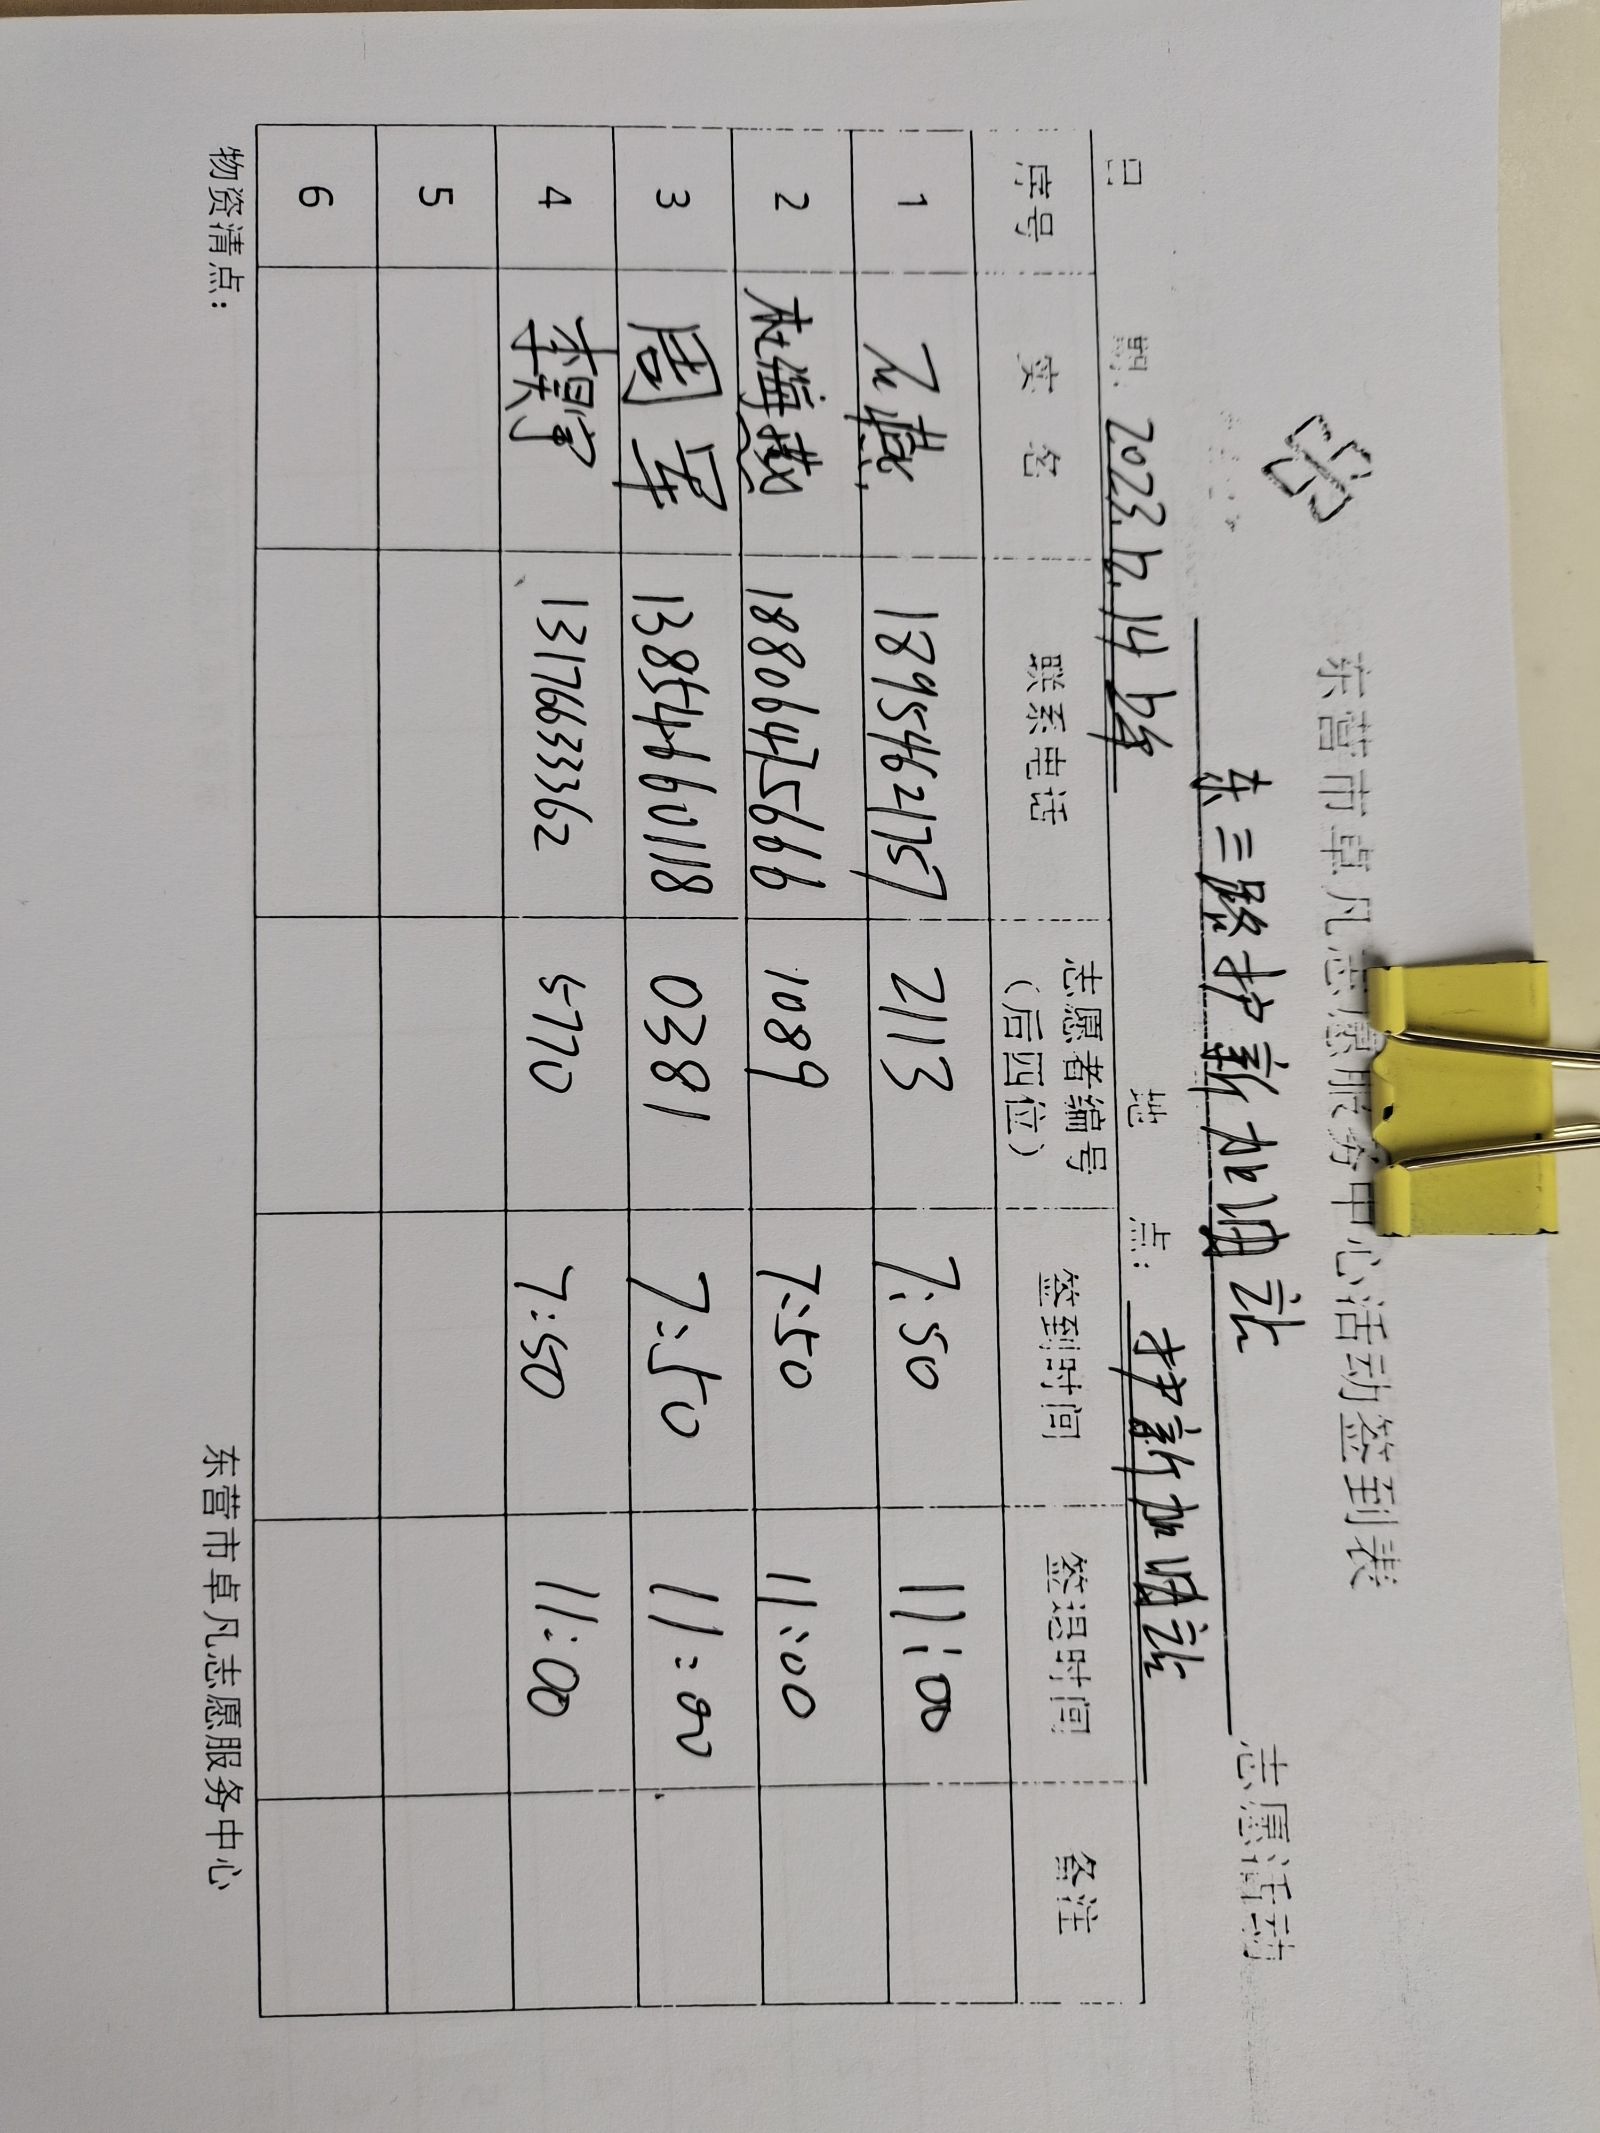 东营市卓凡志愿服务中心活动签到表
东三路护新加油站 志愿活动
日 期: 2023.12.14 上午 地 点: 护新加油站
序号 实 名 联系电话 志愿者编号（后四位） 签到时间 签退时间 备注
1 18954621757 2113 7:50 11:00
2 杜海燕 18806475666 1089 7:50 11:00
3 周军 13854660118 0381 7:50 11:00
4 13176633362 5770 7:50 11:00
5
6
物资清点: 东营市卓凡志愿服务中心